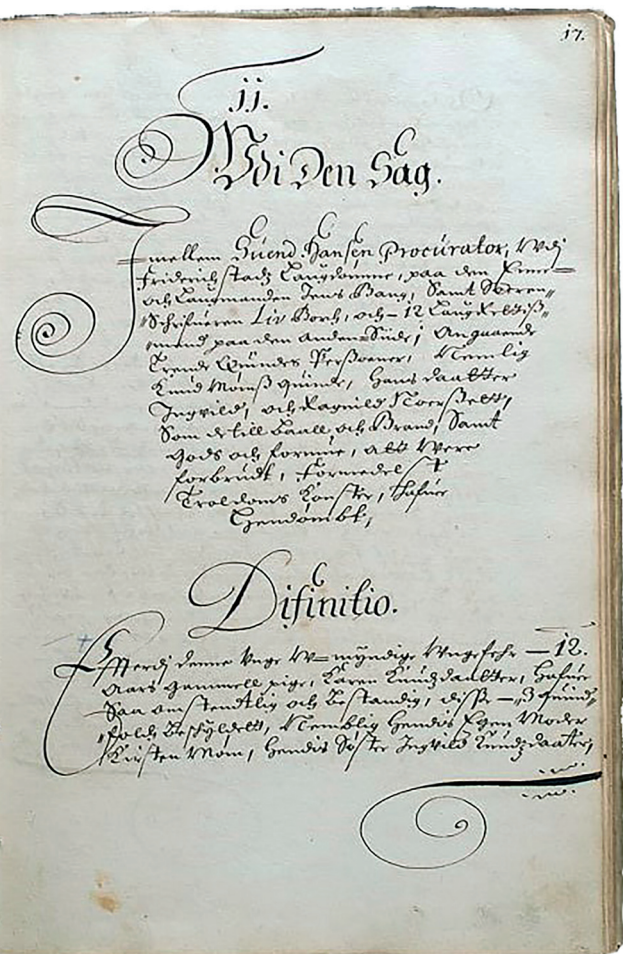 17.
11.
Wdi Den Sag.
Imellem Suend Hansen Procurator, Wdj
Friderichstadz Laugdømme, paa den Eene
och Laugmanden Jens Bang, Samt Soeren-
Schrifueren Liv Borch, och 12 Laug Rettiß-
mænd paa den Anden Side; Angaaende
Trende Quindes Perßoener, Nemlig
Knud Moinß Quinde, Hans daatter
Ingvild, och Ragnild
Som de till Baall och Brand, Samt
Gods och formue, att Were
forbrudt, formedelst
Troldoms Konster, Hafuer
Hendømbt,
Difinitio.
Effterdj denne Unge W-myndige Ungefehr 12.
Aars Gammell pige, Karen Knudzdaatter, Hafuer
Saa omstendtlig och Bestandig, disse 3 Quind-
folch Beskyldett, Nemblig Hendis Egen Moder
Kirsten Moin, Hendis Søster Ingvild Knudzdaater,